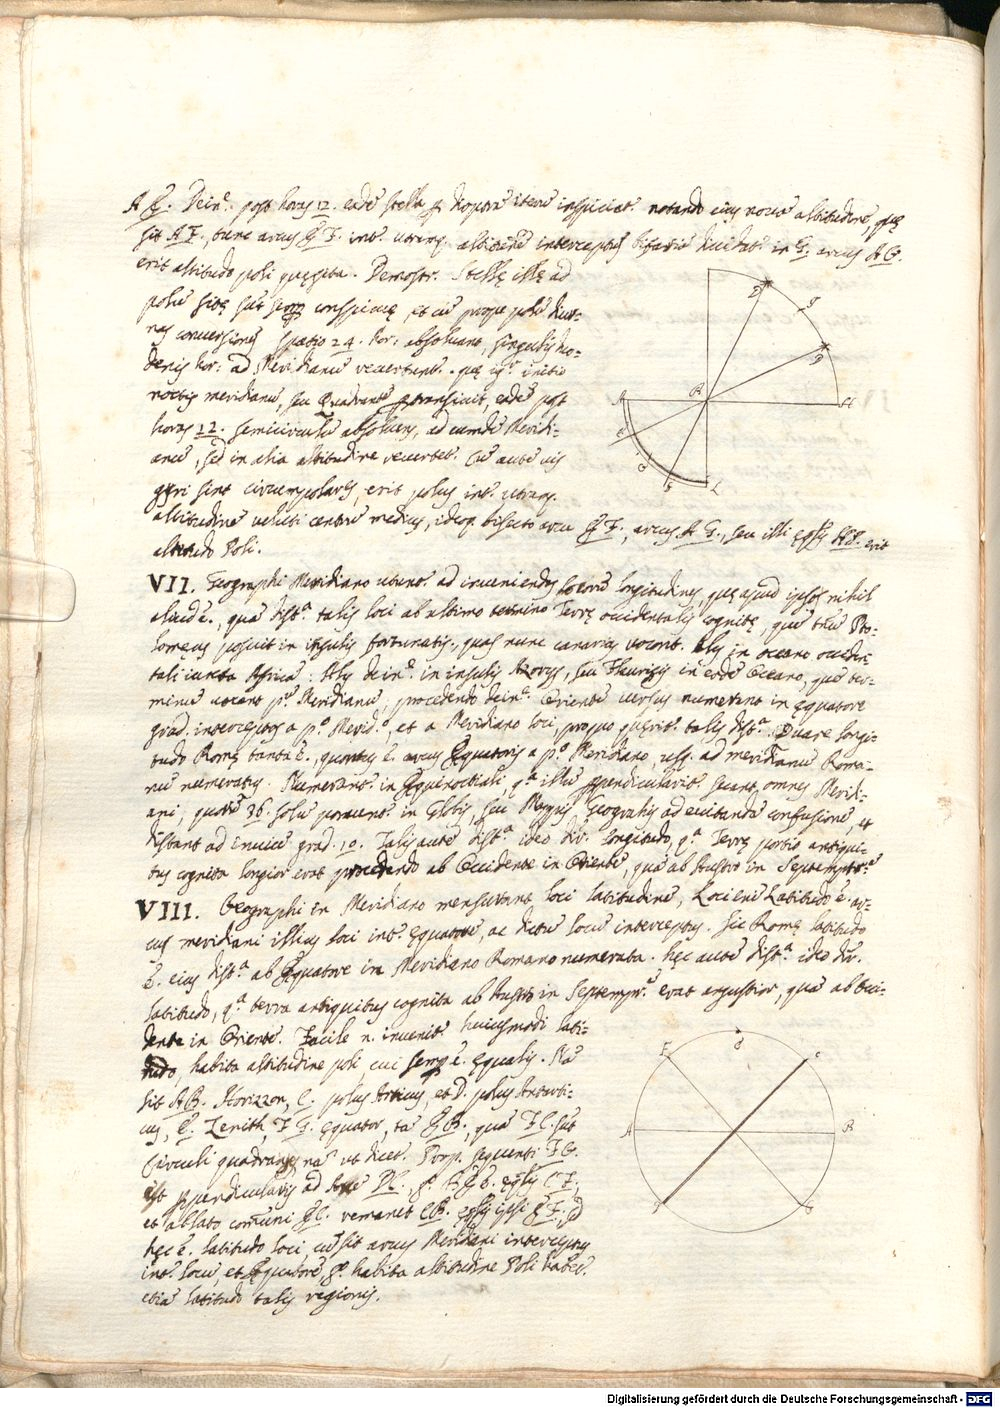 A E. Dein.e post horas 12. eadē stella p dioptrā iterū inspiciat. notando eius novā altitudinē, quę
sit A F, tunc arcus E F. int. utramq. altitudinē interceptus bifariā dividat. in G. arcus A G.
erit altitudo poli quęsita. Demostr. Stellę illę ad
polū sitę sūt semp conspicuę, et cū prope polū diur-
nas conversiones spatio 24. hor: absolvant, singulis ho-
denis hor: ad Meridianū revertunt. quę ig.r initio
noctis meridianū, seu Quadrantē ptransivit, eadē post
horas 12. semicirculū absolvens, ad eumdē Meridi-
anū, sed in alia altitudine revertet. Cū autē eius
gyri sint circumpolares, erit polus int. utramq.
altitudinē veluti centrū medius, ideoq. bisecto arcu E F., arcus A G., seu illi ęqlis erit
altitudo Poli.
VII. Geographi Meridiano utunt. ad inveniendas locorū longitudines, quę apud ipsos nihil
aliud ē., quā dist.a talis loci ab ultimo termino Terrę occidentalis cognitę, quē Pto-
lomeus posuit in insulis fortunatis, quas nunc canarias vocant. Alij in oceano occiden
tali iuxta Africā: Alij dein.e in insulis Azorys, seu in eodē Oceano, quē ter-
minū vocant p.m Meridianū, procedendo dein.e Orientē versus numerant in ęquatore
grad. interceptos a p.o Merid.o, et a Meridiano loci, proquo quęrit. talis dist.a Quare longi-
tudo Romę tanta ē., quantus ē. arcus Equatoris a p.o Meridiano, usq. ad meridianū Roma-
nū numeratus. Numerant. in Equinoctiali, q.a illū ppendiculariter secant omnes Meridi-
ani, quorū 36. solū ponunt. in Globis, seu Mappis Geograficis ad evitandā confusionē, et
distant ad invicē grad. 10. Talis autē dist.a ideo dir. longitudo, q.a Terrę portio antiqui-
tus cognita longior erat procedendo ab Occidente in Orientē, quā ab Austro in Septemptr.e
VIII. Geographi in Meridiano mensurant loci latitudinē, Loci eni Latitudo ē. ar-
cus meridiani illius loci int. ęquatorē, ac dictū locū interceptus. Sic Romę latitudo
ē. eius dist.a ab Equatore in Meridiano Romano numerata. hęc autē dist.a ideo dir.
latitudo, q.a terra antiquitus cognita ab Austro in Septemptr.e erat angustior, quā ab Occi-
dente in Orientē. Facile n. invenit. huiusmodi lati-
tudo, habita altitudine poli, cui semp ē. ęqualis. Nā
sit A B. Horizzon, C. polus Articus, et D. polus Antarti-
cus, E. Zenith, F G. ęquator, tā E B., quā F C. sūt
Circuli quadrantes, nā ut dicet. Prop. sequenti F G.
est ppendicularis ad D C., g.o E B. ęqlis C F.,
et ablato comuni E C. remanet C B. ęqlis ipsi E F., sed
hęc ē. latitudo loci, cū sit arcus Meridiani interceptus
int. locū, et Equatorē, g.o habita altitudine Poli habet.
etiā latitudo talis regionis.
A
B
F
Digitalisierung gefördert durch die Deutsche Forschungsgemeinschaft - DFG